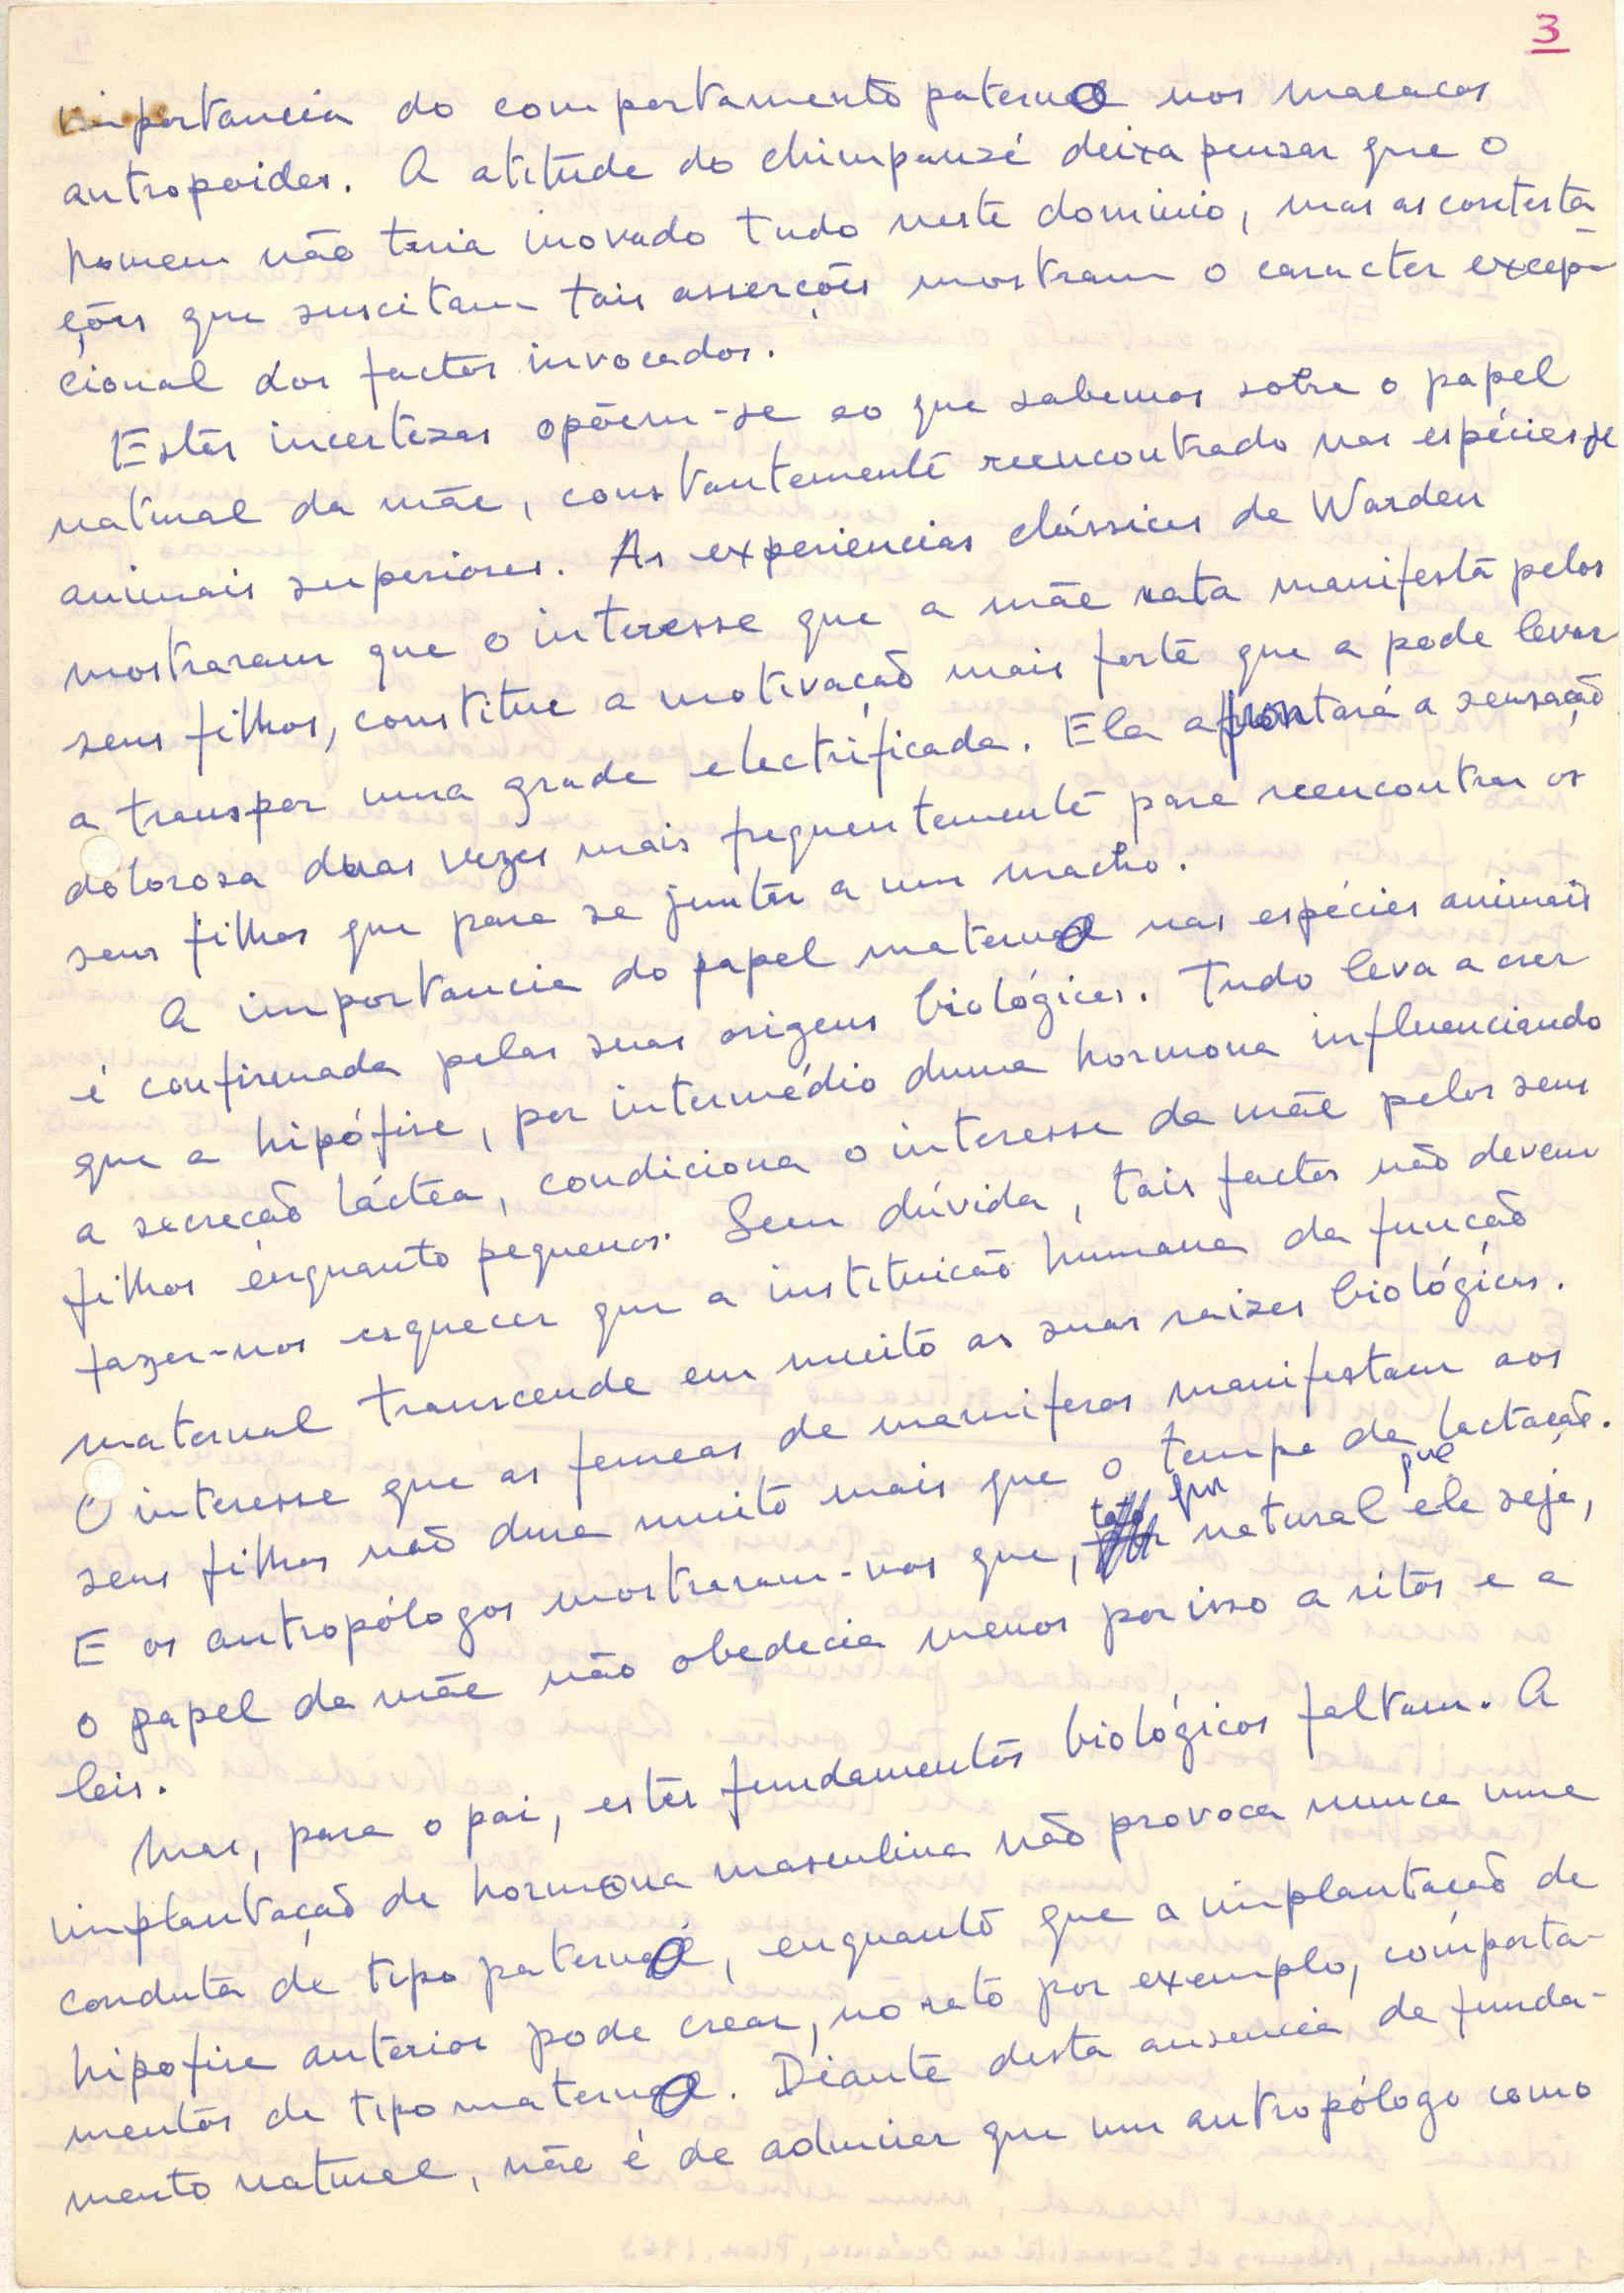 3
importancia do comportamento paterno nos macacos
antropoides. A atitude do chimpanzé deixa pensar que o
homem não teria inovado tudo neste dominio, mas as contesta
ções que suscitam tais asserções mostram o caracter excep-
cional dos factos invocados.
Estas incertezas opõem-se ao que sabemos sobre o papel
natural da mãe, constantemente reencontrado nas espécies
animais superiores. As experiencias clássicas de Warden
mostraram que o interesse que a mãe rata manifesta pelos
seus filhos, constitue a motivação mais forte que a pode levar
a transpor uma grade electrificada. Ela afrontará a sensação
dolorosa duas vezes mais frequentemente para reencontrar os
seus filhos que para se juntar a um macho.
A importancia do papel materno nas espécies animais
é confirmada pelas suas origens biológicas. Tudo leva a crer
que a hipófise, por intermédio duma hormona influenciando
a secreção láctea, condiciona o interesse da mãe pelos seus
filhos enquanto pequenos. Sem dúvida, tais factos não devem
fazer-nos esquecer que a instituição humana da função
maternal transcende em muito as suas raizes biológicas.
O interesse que as femeas de mamiferos manifestam aos
seus filhos não dura muito mais que o tempo da lactação.
E os antropólogos mostraram-nos que, por natural que ele seja,
o papel da mãe não obedecia menos por isso a ritos e a
leis.
Mas, para o pai, estes fundamentos biológicos faltam. A
implantação de hormona masculina não provoca nunca uma
conduta de tipo paterno, enquanto que a implantação de
hipofise anterior pode crear, no rato por exemplo, comporta-
mentos de tipo materno. Diante desta ausencia de funda-
mento natural, não é de admirar que um antropólogo como